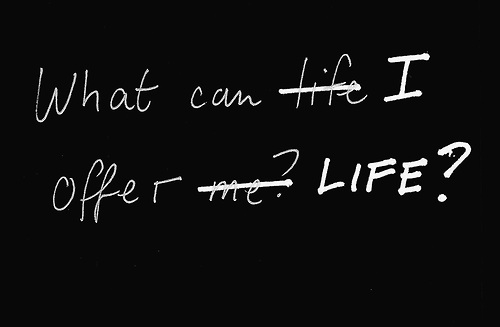 What can life I
offer me? LIFE?